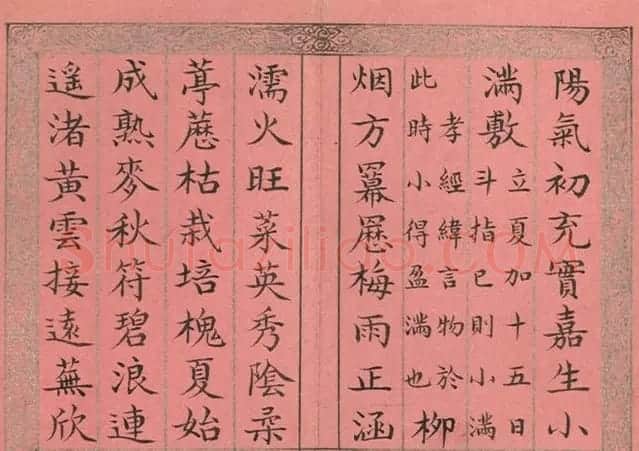 陽氣初充實嘉生小
滿敷
立夏加十五日
斗指巳則小滿
孝經緯言物於
此時小得盈滿也
柳
烟方羃䍥梅雨正涵
濡火旺菜英秀陰柔
葶藶枯栽培槐夏始
成熟麥秋符碧浪連
遥渚黃雲接遠蕪欣